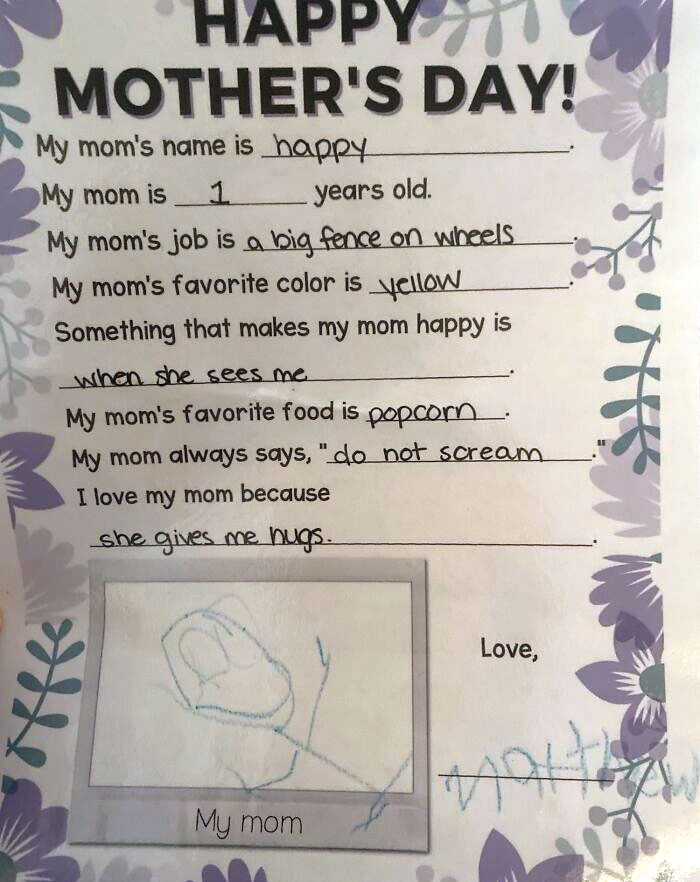 HAPPY
MOTHER'S DAY!
My mom's name is happy.
My mom is 1 years old.
My mom's job is a big fence on wheels.
My mom's favorite color is yellow.
Something that makes my mom happy is
when she sees me.
My mom's favorite food is popcorn.
My mom always says, "do not scream."
I love my mom because
she gives me hugs. .
Love,
Matthew
My mom